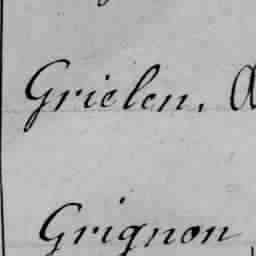 Grielen. A
Grignon